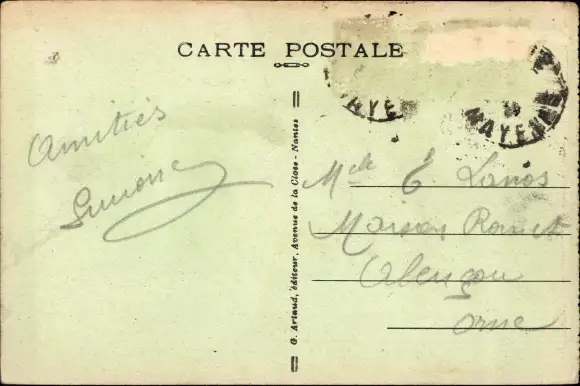 CARTE POSTALE
MAYENNE
Amitiés
Simone
G. Artaud, éditeur, Avenue de la Close - Nantes
Melle E Lanos
Maison
Alençon
Orne